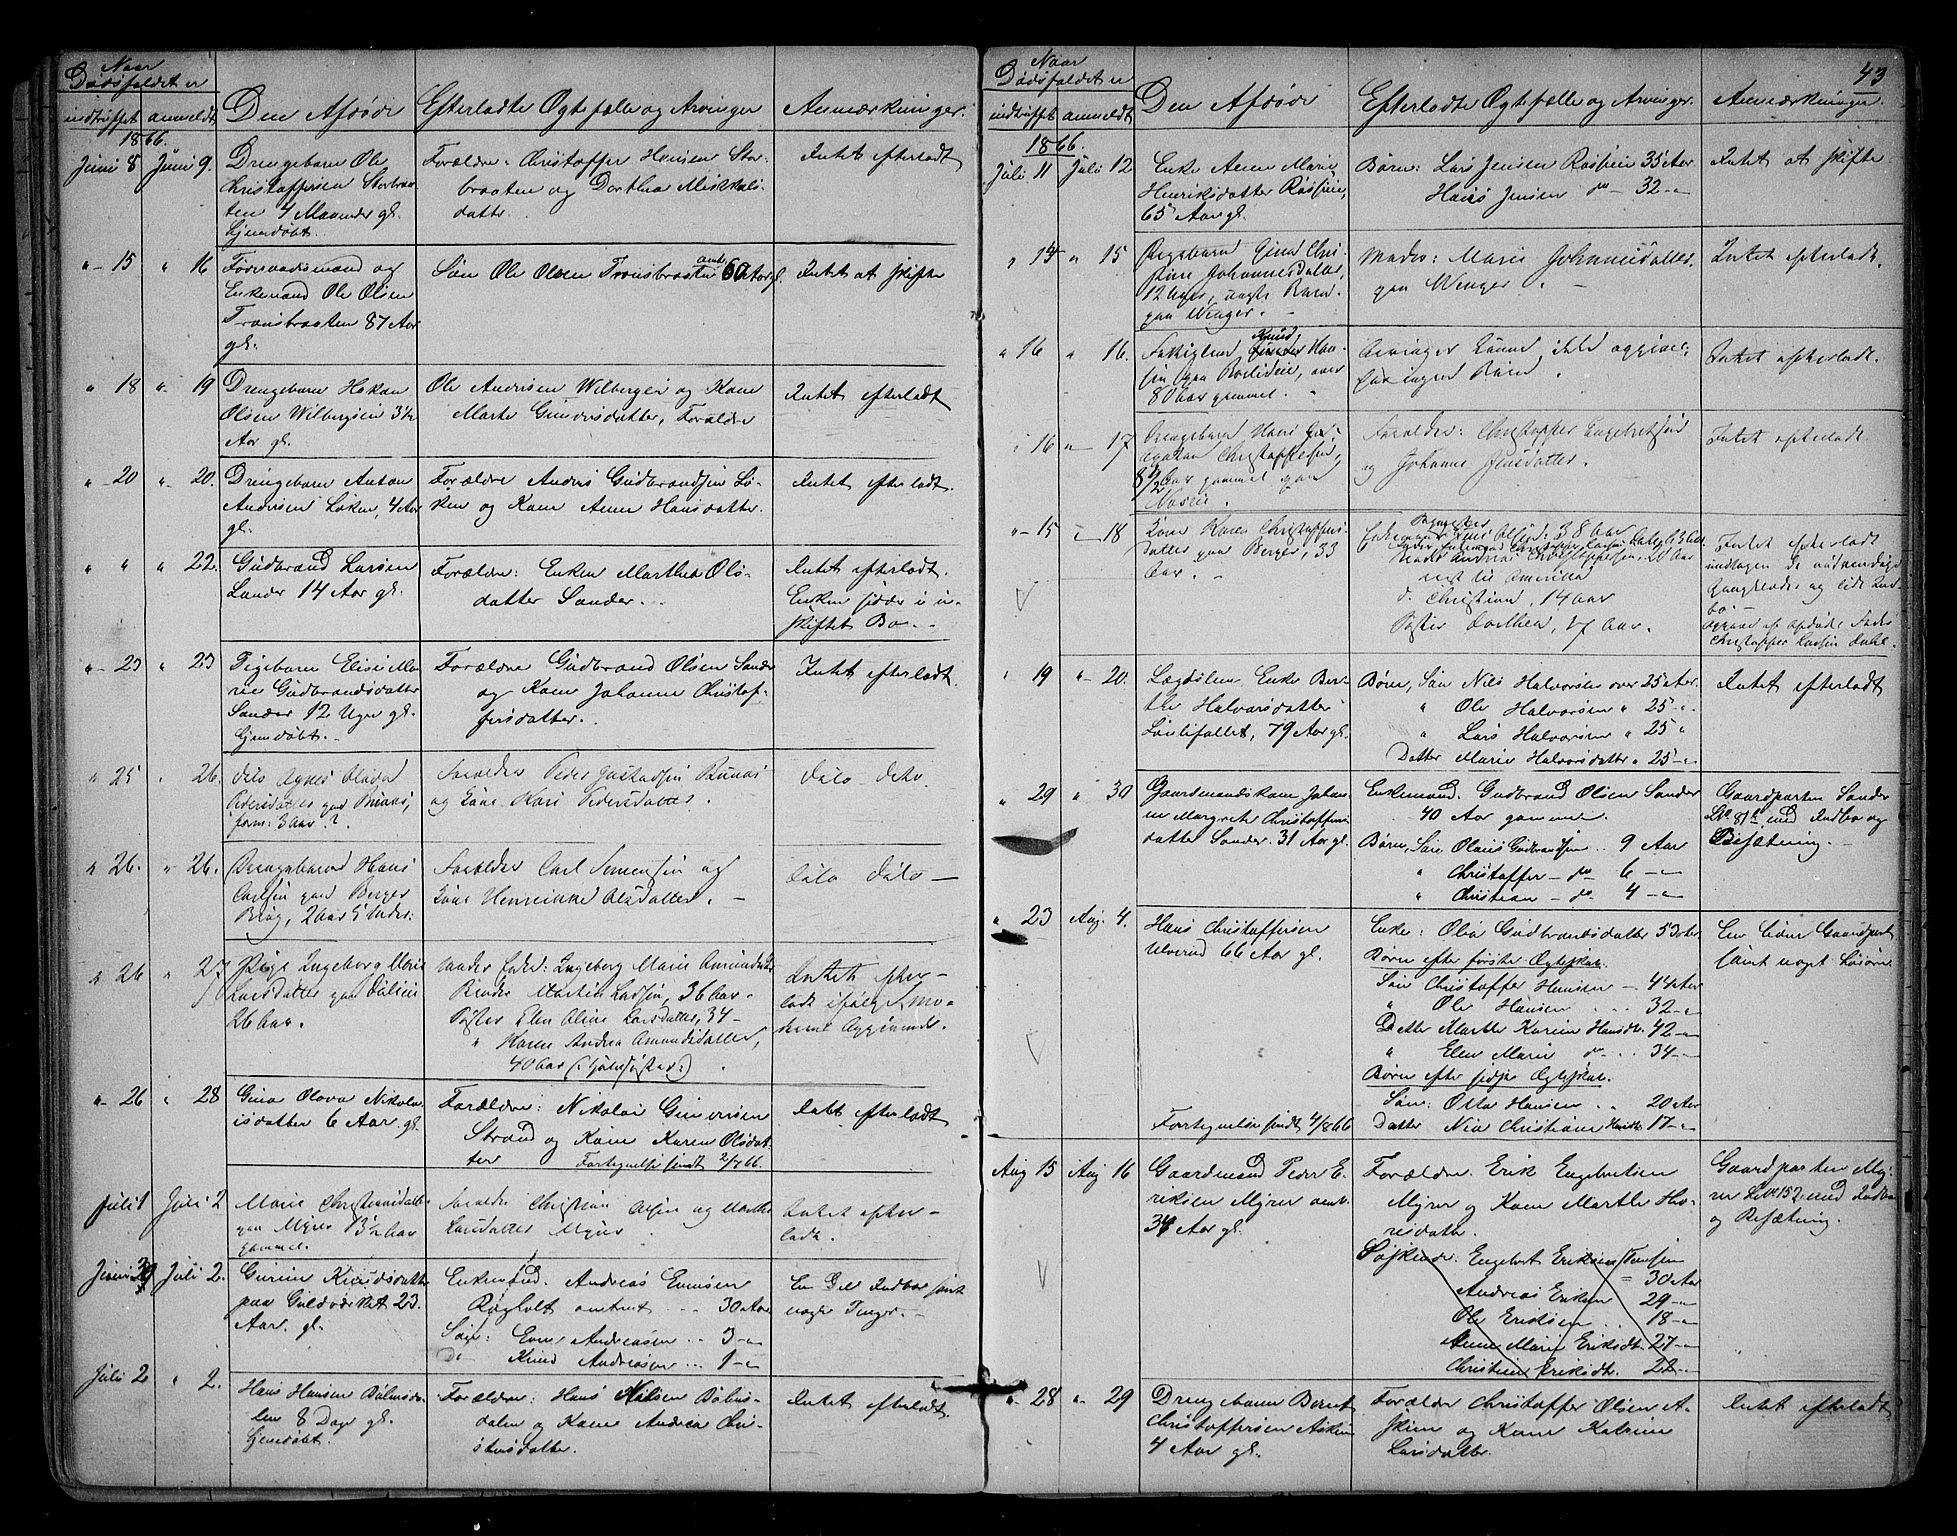 Naar
Dødsfaldet er
indtruffet anmeldt
Den Afdøde
Efterladte Ægtefælle og Arvinger
Anmærkninger.
1866.
Juni 8 Juni 9.
Drengebarn Ole
Christoffersen Storbraa-
ten 4 Maaneder gl.
hjemdøbt.
Forældre: Christoffer Hansen Stor-
braaten og Dorthea Mikkels-
datter.
Intet efterladt
" 15 " 16
Føderaadsmand og
Enkemand Ole Olsen
Tronsbraaten 87 Aar
gl.
Søn Ole Olsen Tronsbraaten omt. 60 Aar gl.
Intet at skifte
" 18 " 19
Drengebarn Hakan
Olsen Wilbergeie 3½
Aar gl.
Ole Andersen Wilbergeie og Kone
Marte Gundersdatter, Forældre
Intet efterladt
" 20 " 20.
Drengebarn Anton
Andersen Løken, 4 Aar
gl.
Forældre Anders Gudbrandsen Lø-
ken og Kone Anne Hansdatter.
Intet efterladt.
" " " 22.
Gudbrand Larsen
Sander 14 Aar gl.
Forældre: Enken Marthea Ols-
datter Sander.
Intet efterladt.
Enken sidder i u-
skiftet Bo.
" 23 " 23
Pigebarn Elise Ma-
rie Gudbrandsdatter
Sander 12 Uger gl.
hjemdøbt.
Forældre Gudbrand Olsen Sander
og Kone Johanne Christof-
fersdatter.
Intet efterladt.
" 25 " 26.
dito Agnes Olava
Pedersdatter paa
3 Aar
Forældre Peder Gustadsen
og Kone Kari Pedersdatter.
dito dito
" 26. " 26.
Drengebarn Hans
Carlsen paa Berger
Brug, 2 Aar
Forældre Carl Simensen og
Kone Henrikke Olsdatter.
dito dito
" 26 " 27
Pige Ingeborg Marie
Larsdatter paa
26 Aar.
Moder Enke: Ingeborg Marie Amundsdtr.
Broder Martin Larsen, 36 Aar
Søster Elen Oline Larsdatter, 34
" Karen Andrea Amundsdatter,
40 Aar (: halvsøster :)
Intet efter-
ladt ifølge Mo-
derens Opgivende.
" 26 " 28
Gina Olava Nikola-
isdatter 6 Aar gl.
Forældre: Nikolai Gunersen
Strand og Kone Karen Olsdat-
ter Fortegnelse sendt 2/7 66.
Intet efterladt
Juli 1 Juli 2
Marie Christiansdatter
paa Myrer 13½ Aar
gammel.
Forældre Christian Olsen og Marthe
Larsdatter Myrer.
Intet efter-
ladt.
Juni 29 Juli 2.
Gurine Knudsdatter
paa Guldværket 23
Aar gl.
Enkemand. Andreas Evensen
Røgholt omtrent 30 Aar
Søn: Even Andreasen 3
Do Knud Andreasen 1
En Del Indbo samt
nogle Penger.
Juli 2 " 2.
Hans Hansen Bølersda-
len 8 Dage gl.
hjemdøbt.
Forældre: Hans Nilsen Bølers-
dalen og Kone Andrea Chri-
stensdatter.
Intet efterladt
43
Naar
Dødsfaldet er
indtruffet anmeldt
Den Afdøde
Efterladte Ægtefælle og Arvinger.
Anmærkninger.
1866.
Juli 11 Juli 12
Enke Anne Marie
Henriksdatter Røseie,
65 Aar gl.
Børn: Lars Jensen Røseie 35 Aar
Hans Jensen do 32
Intet at skifte
" 14 " 15
Pigebarn Gina Chri-
stine Johannesdatter,
12 Uger, uægte Barn
paa Wenger.
Moder: Marie Johannesdatter
paa Wenger.
Intet efterladt.
" 16 " 16.
Fattiglem Knud Han-
sen paa, over
80 Aar gammel.
Arvinger kunne ikke opgives,
ingen Børn.
Intet efterladt.
" 16 " 17
Drengebarn Hans
Christoffersen,
8½ Aar gammel paa
Forældre: Christoffer Engebretsen
og Johanne Jensdatter.
Intet efterladt
" 15 " 18
Kone Karen Christoffers-
datter paa Berger, 33
Aar.
Enkemand Ole Olsen: 38 Aar
Fader Enkemand Christoffer Larsen Dahl 63 Aar
Broder Andreas Christoffersen 20 Aar
rejst til Amerika
d. Christian, 14 Aar
Søster Dorthea, 17 Aar.
Intet efterladt
undtagen de nødvendige
Gangklæder og lidt Ind-
bo.
opgivet af Afdødes Fader
Christoffer Larsen Dahl.
" 19 " 20.
Lægdslem Enke Ber-
the Halvorsdatter
79 Aar gl.
Børn, Søn Nils Halvorsen over 25 Aar.
" Ole Halvorsen " 25
" Lars Halvorsen " 25
Datter Marie Halvorsdatter " 25
Intet efterladt
" 29 " 30
Gaardmandskone Johan-
ne Margrete Christoffers-
datter Sander. 31 Aar gl.
Enkemand. Gudbrand Olsen Sander
40 Aar gammel.
Børn, Søn Olaus Gudbrandsen 9 Aar
" Christoffer do 6
" Christian do 4
Gaardparten Sander
LNo 81 med Indbo og
Besætning.
" 23 Aug. 4.
Hans Christoffersen
Ulverud 66 Aar gl.
Fortegnelse sendt 4/8 66
Enke: Olea Gudbrandsdatter 53 Aar.
Børn efter første Ægteskab.
Søn Christoffer Hansen 44 Aar
" Ole Hansen 32
Datter Marthe Karine Hansdtr. 42
" Elen Marie do 34
Børn efter sidste Ægteskab.
Søn: Otto Hansen 20 Aar
Datter Nia Christiane Hansdtr. 17
En liden Gaardpart
samt noget Løsøre
Aug 15 Aug 16
Gaardmand Peder E-
riksen Myrer omtr.
34 Aar gl.
Forældre. Erik Engebretsen
Myrer og Kone Marthe Hav-
resdatter.
Søskende: Engebret Eriksen
30 Aar
Andreas Eriksen 29
Ole Eriksen 18
Anne Marie Eriksdtr. 27
Christine Eriksdtr. 22
Gaardparten My-
rer LNo 152 med Indbo
og Besætning.
" 28 " 29
Drengebarn Bernt
Christoffersen Askim
4 Aar gl.
Forældre Christoffer Olsen A-
skim og Kone Katrine
Larsdatter.
Intet efterladt